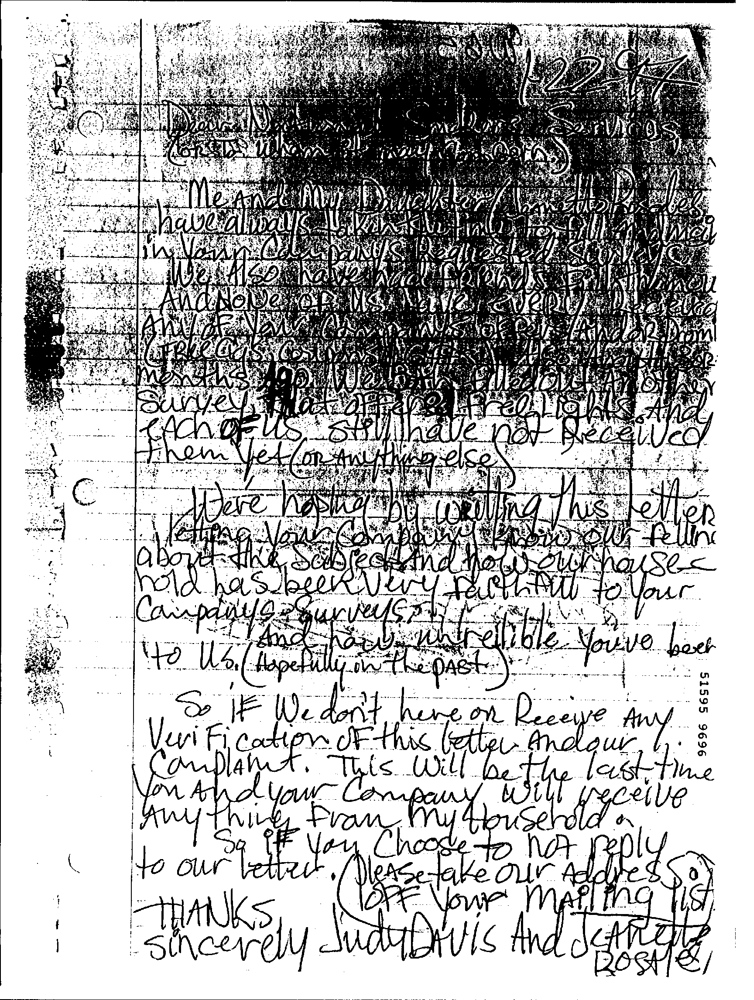 1-22-97
Dear National Smokers Services
(or to whom it may concern.)
Me And My Daughter
have always taken the time to fill And mail
in Your Company's Requested Surveys
We Also have had friends Fill them out
And None OF Us have every Received
Any of Your Company's And or
(FREE coupons
months Ago. We both filled out Another
Survey that offered free lights. And
eAch OF US still have not Received
them yet (OR Anything else)
We're hoping by writting this letter
letting Your Company know our felling
about the Subject And how our house-
hold has been Very faithful to Your
Company's Surveys.
And how unrelible you've been
to Us. (hopefully in the pAST)
51595 9696
So iF We don't here or Receive Any
VeriFication OF this letter And our
ComplAint. This Will be the last time
You And your Company will receive
Anything From My Household.
So iF You Choose to not reply
to our letter. (PleAse take our Address
OFF Your MAiling list
THANKS,
sincerely Judy DAVIS And JeAnette
ROSAles